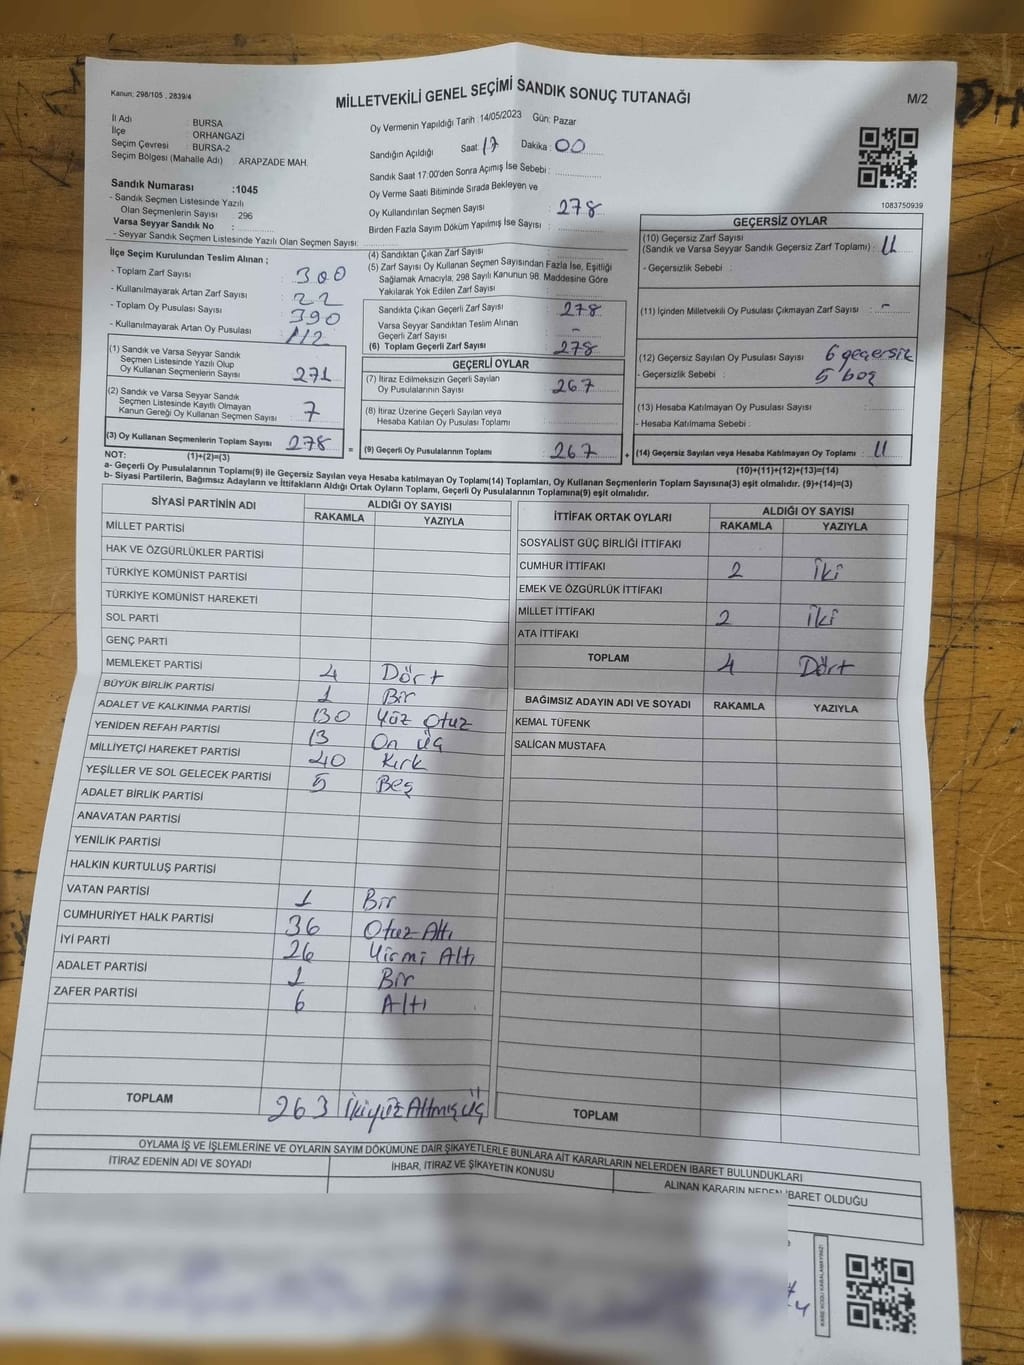 Kanun: 298/105 , 2839/4
MİLLETVEKİLİ GENEL SEÇİMİ SANDIK SONUÇ TUTANAĞI
M/2
İl Adı : BURSA
İlçe : ORHANGAZİ
Seçim Çevresi : BURSA-2
Seçim Bölgesi (Mahalle Adı) : ARAPZADE MAH.
Sandık Numarası :1045
- Sandık Seçmen Listesinde Yazılı
Olan Seçmenlerin Sayısı : 296
Varsa Seyyar Sandık No :
- Seyyar Sandık Seçmen Listesinde Yazılı Olan Seçmen Sayısı:
Oy Vermenin Yapıldığı Tarih 14/05/2023 Gün: Pazar
Sandığın Açıldığı Saat: 17 Dakika : 00
Sandık Saat 17:00'den Sonra Açımış İse Sebebi :
Oy Verme Saati Bitiminde Sırada Bekleyen ve
Oy Kullandırılan Seçmen Sayısı : 278
Birden Fazla Sayım Döküm Yapılmış İse Sayısı :
1083750939
İlçe Seçim Kurulundan Teslim Alınan ;
- Toplam Zarf Sayısı : 300
- Kullanılmayarak Artan Zarf Sayısı : 22
- Toplam Oy Pusulası Sayısı : 390
- Kullanılmayarak Artan Oy Pusulası : 112
(1) Sandık ve Varsa Seyyar Sandık
Seçmen Listesinde Yazılı Olup
Oy Kullanan Seçmenlerin Sayısı : 271
(2) Sandık ve Varsa Seyyar Sandık
Seçmen Listesinde Kayıtlı Olmayan
Kanun Gereği Oy Kullanan Seçmen Sayısı : 7
(3) Oy Kullanan Seçmenlerin Toplam Sayısı : 278 =
(4) Sandıktan Çıkan Zarf Sayısı :
(5) Zarf Sayısı Oy Kullanan Seçmen Sayısından Fazla İse, Eşitliği
Sağlamak Amacıyla; 298 Sayılı Kanunun 98. Maddesine Göre
Yakılarak Yok Edilen Zarf Sayısı :
Sandıkta Çıkan Geçerli Zarf Sayısı : 278
Varsa Seyyar Sandıktan Teslim Alınan
Geçerli Zarf Sayısı : -
(6) Toplam Geçerli Zarf Sayısı : 278
GEÇERLİ OYLAR
(7) İtiraz Edilmeksizin Geçerli Sayılan
Oy Pusulalarının Sayısı : 267
(8) İtiraz Üzerine Geçerli Sayılan veya
Hesaba Katılan Oy Pusulası Toplamı :
(9) Geçerli Oy Pusulalarının Toplamı : 267 +
GEÇERSİZ OYLAR
(10) Geçersiz Zarf Sayısı
(Sandık ve Varsa Seyyar Sandık Geçersiz Zarf Toplamı) : 11
- Geçersizlik Sebebi :
(11) İçinden Milletvekili Oy Pusulası Çıkmayan Zarf Sayısı : -
(12) Geçersiz Sayılan Oy Pusulası Sayısı : 6 geçersik
- Geçersizlik Sebebi : 5 boş
(13) Hesaba Katılmayan Oy Pusulası Sayısı :
- Hesaba Katılmama Sebebi :
(14) Geçersiz Sayılan veya Hesaba Katılmayan Oy Toplamı : 11
NOT: (1)+(2)=(3)
(10)+(11)+(12)+(13)=(14)
a- Geçerli Oy Pusulalarının Toplamı(9) ile Geçersiz Sayılan veya Hesaba katılmayan Oy Toplamı(14) Toplamları, Oy Kullanan Seçmenlerin Toplam Sayısına(3) eşit olmalıdır. (9)+(14)=(3)
b- Siyasi Partilerin, Bağımsız Adayların ve İttifakların Aldığı Ortak Oyların Toplamı, Geçerli Oy Pusulalarının Toplamına(9) eşit olmalıdır.
SİYASİ PARTİNİN ADI ALDIĞI OY SAYISI
RAKAMLA YAZIYLA
MİLLET PARTİSİ
HAK VE ÖZGÜRLÜKLER PARTİSİ
TÜRKİYE KOMÜNİST PARTİSİ
TÜRKİYE KOMÜNİST HAREKETİ
SOL PARTİ
GENÇ PARTİ
MEMLEKET PARTİSİ 4 Dört
BÜYÜK BİRLİK PARTİSİ 1 Bir
ADALET VE KALKINMA PARTİSİ 130 Yüz Otuz
YENİDEN REFAH PARTİSİ 13 On üç
MİLLİYETÇİ HAREKET PARTİSİ 40 Kırk
YEŞİLLER VE SOL GELECEK PARTİSİ 5 Beş
ADALET BİRLİK PARTİSİ
ANAVATAN PARTİSİ
YENİLİK PARTİSİ
HALKIN KURTULUŞ PARTİSİ
VATAN PARTİSİ 1 Bir
CUMHURİYET HALK PARTİSİ 36 Otuz Altı
İYİ PARTİ 26 Yirmi Altı
ADALET PARTİSİ 1 Bir
ZAFER PARTİSİ 6 Altı
TOPLAM 263 İkiyüz Altmış üç
İTTİFAK ORTAK OYLARI ALDIĞI OY SAYISI
RAKAMLA YAZIYLA
SOSYALİST GÜÇ BİRLİĞİ İTTİFAKI
CUMHUR İTTİFAKI 2 İki
EMEK VE ÖZGÜRLÜK İTTİFAKI
MİLLET İTTİFAKI 2 İki
ATA İTTİFAKI
TOPLAM 4 Dört
BAĞIMSIZ ADAYIN ADI VE SOYADI RAKAMLA YAZIYLA
KEMAL TÜFENK
SALİCAN MUSTAFA
TOPLAM
OYLAMA İŞ VE İŞLEMLERİNE VE OYLARIN SAYIM DÖKÜMÜNE DAİR ŞİKAYETLERLE BUNLARA AİT KARARLARIN NELERDEN İBARET BULUNDUKLARI
İTİRAZ EDENİN ADI VE SOYADI İHBAR, İTİRAZ VE ŞİKAYETİN KONUSU ALINAN KARARIN NEDEN İBARET OLDUĞU
KARE KODU KARALAMAYINIZ!